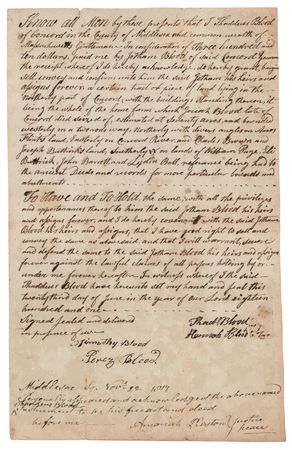 Know all Men by these presents that I Thaddeus Blood
of Concord in the County of Middlesex and common wealth of
Massachusetts Gentleman In consideration of Three hundred and
ten dollars, paid me by Jotham Blood of said Concord yeoman
the receipt whereof I do hereby acknowledge, do hereby grant
sell, convey and confirm unto him the said Jotham his heirs and
assigns forever a certain tract or piece of land lying in the
Northerly part of Concord, with the buildings standing thereon, it
being the whole of the home farm which Josiah Blood late of
Concord died seized of, estimated at seventy acres, and bounded
westerly on a town way, Northerly with
land, Easterly on Concord River and Charles Brown and
Joseph land, southerly on land of William Page, Its
Buttrick John Barrett and Lydia Ball, referance being had to
the ancient Deeds and records for more particular bounds and
abuttments.
To Have and To Hold the same with all the privileges
and appurtenances thereof to him the said Jotham Blood his heirs
and assigns forever, and I do hereby covenant with the said Jotham
Blood his heirs and assigns, that I have good right to sell and
convey the same as aforesaid, and that I will warrant, secure
and defend the same to the said Jotham Blood his heirs and assigns
forever against the lawful claims of all persons claiming by or
under me forever hereafter. In witness whereof I the said
Thaddeus Blood have hereunto set my hand and seal this
twenty third day of June in the year of our Lord eighteen
hundred and one
Signed sealed and delivered
in presence of us
Thad Blood
Hannah Blood
Timothy Blood
Percy Blood
Middlesex Ss Novr. 22 1817
Personally appeared and acknowledged the above named
Thaddeus Blood instrument to be his free act and deed
before me Justice
peace